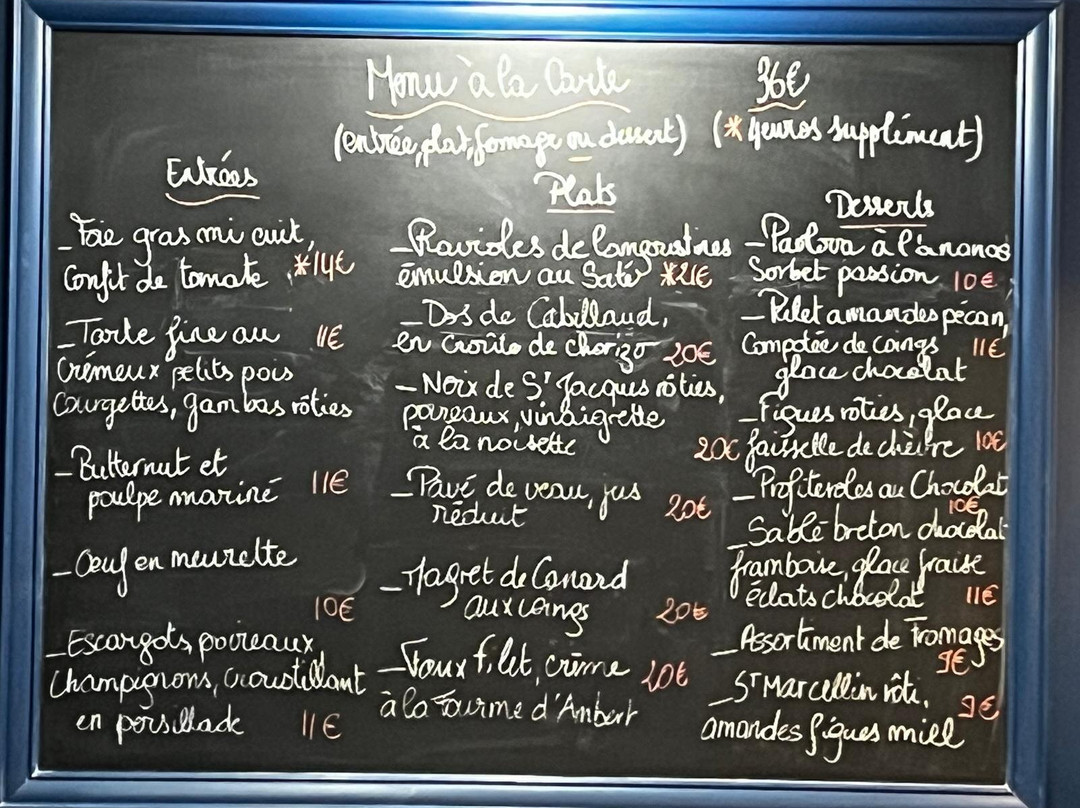 Menu à la Carte 36€
(entrée, plat, fomage ou dessert) (*4euros supplément)
Entrées
_Foie gras mi cuit,
Confit de tomate *14€
_Tarte fine au 11€
Crémeux petits pois
Courgettes, gambas rôties
_Butternut et
poulpe mariné 11€
_Oeuf en meurette
10€
_Escargots, poireaux,
Champignons, croustillant
en persillade 11€
Plats
_Ravioles de langoustines
émulsion au Saté *21€
_Dos de Cabillaud,
en croûte de chorizo 20€
_Noix de St Jacques rôties,
poireaux, vinaigrette
à la noisette 20€
_Pavé de veau, jus
réduit 20€
_Magret de Canard
aux coings 20€
_Faux filet, crème 20€
à la Fourme d'Ambert
Desserts
_Pavlova à l'ananas
Sorbet passion 10€
_Relet amandes pécan,
Compotée de coings 11€
glace chocolat
_Figues roties, glace
faisselle de chèvre 10€
_Profiteroles au Chocolat
10€
_Sablé breton chocolat
framboise, glace fraise
éclats chocolat 11€
_Assortiment de Fromages
9€
_St Marcellin rôti, 9€
amandes figues miel